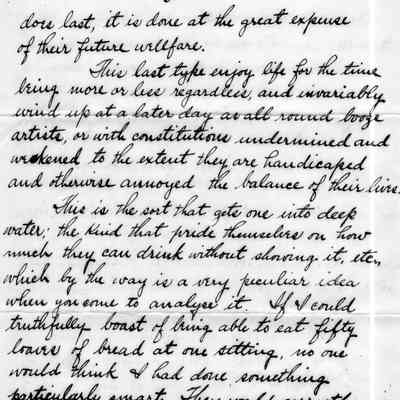 does last, it is done at the great expense
of their future wellfare.
This last type enjoy life for the time
being more or less regardless, and invariably
wind up at a later day as all round booze
artists, or with constitutions undermined and
weakened to the extent they are handicaped
and otherwise annoyed the balance of their lives.
This is the sort that gets one into deep
water; the kind that pride themselves on how
much they can drink without showing it, etc.,
which by the way is a very peculiar idea
when you come to analyse it. If I could
truthfully boast of being able to eat fifty
loaves of bread at one sitting, no one
would think I had done something
particularly smart. They would